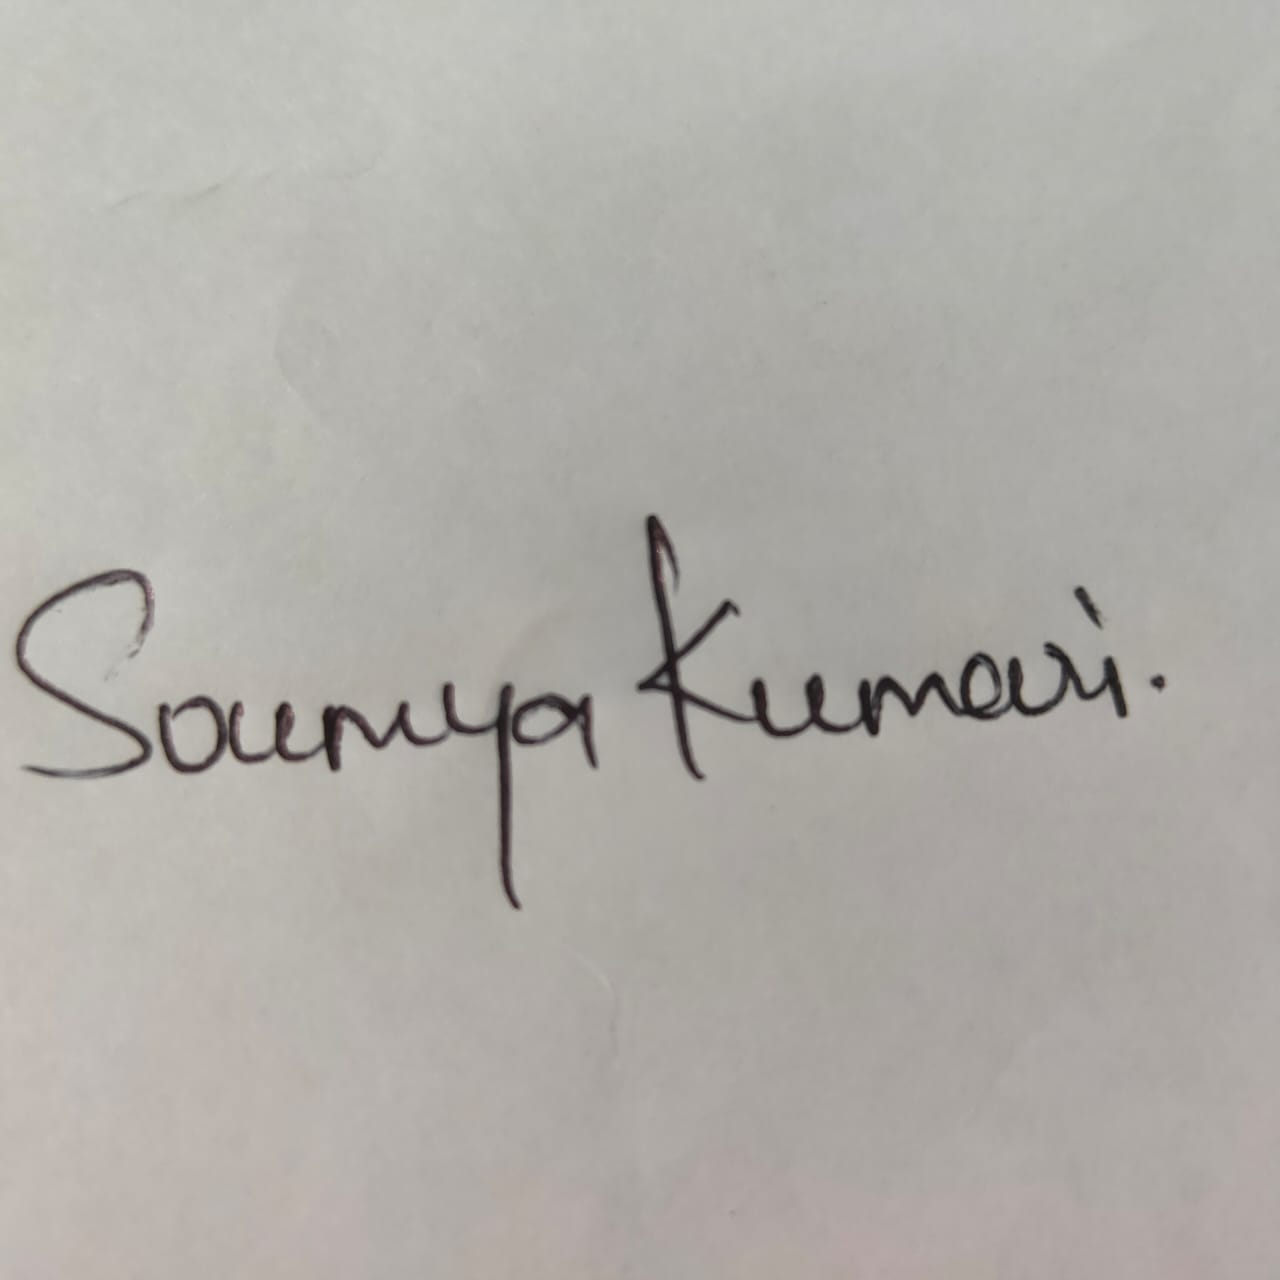 Soumya Kumari.